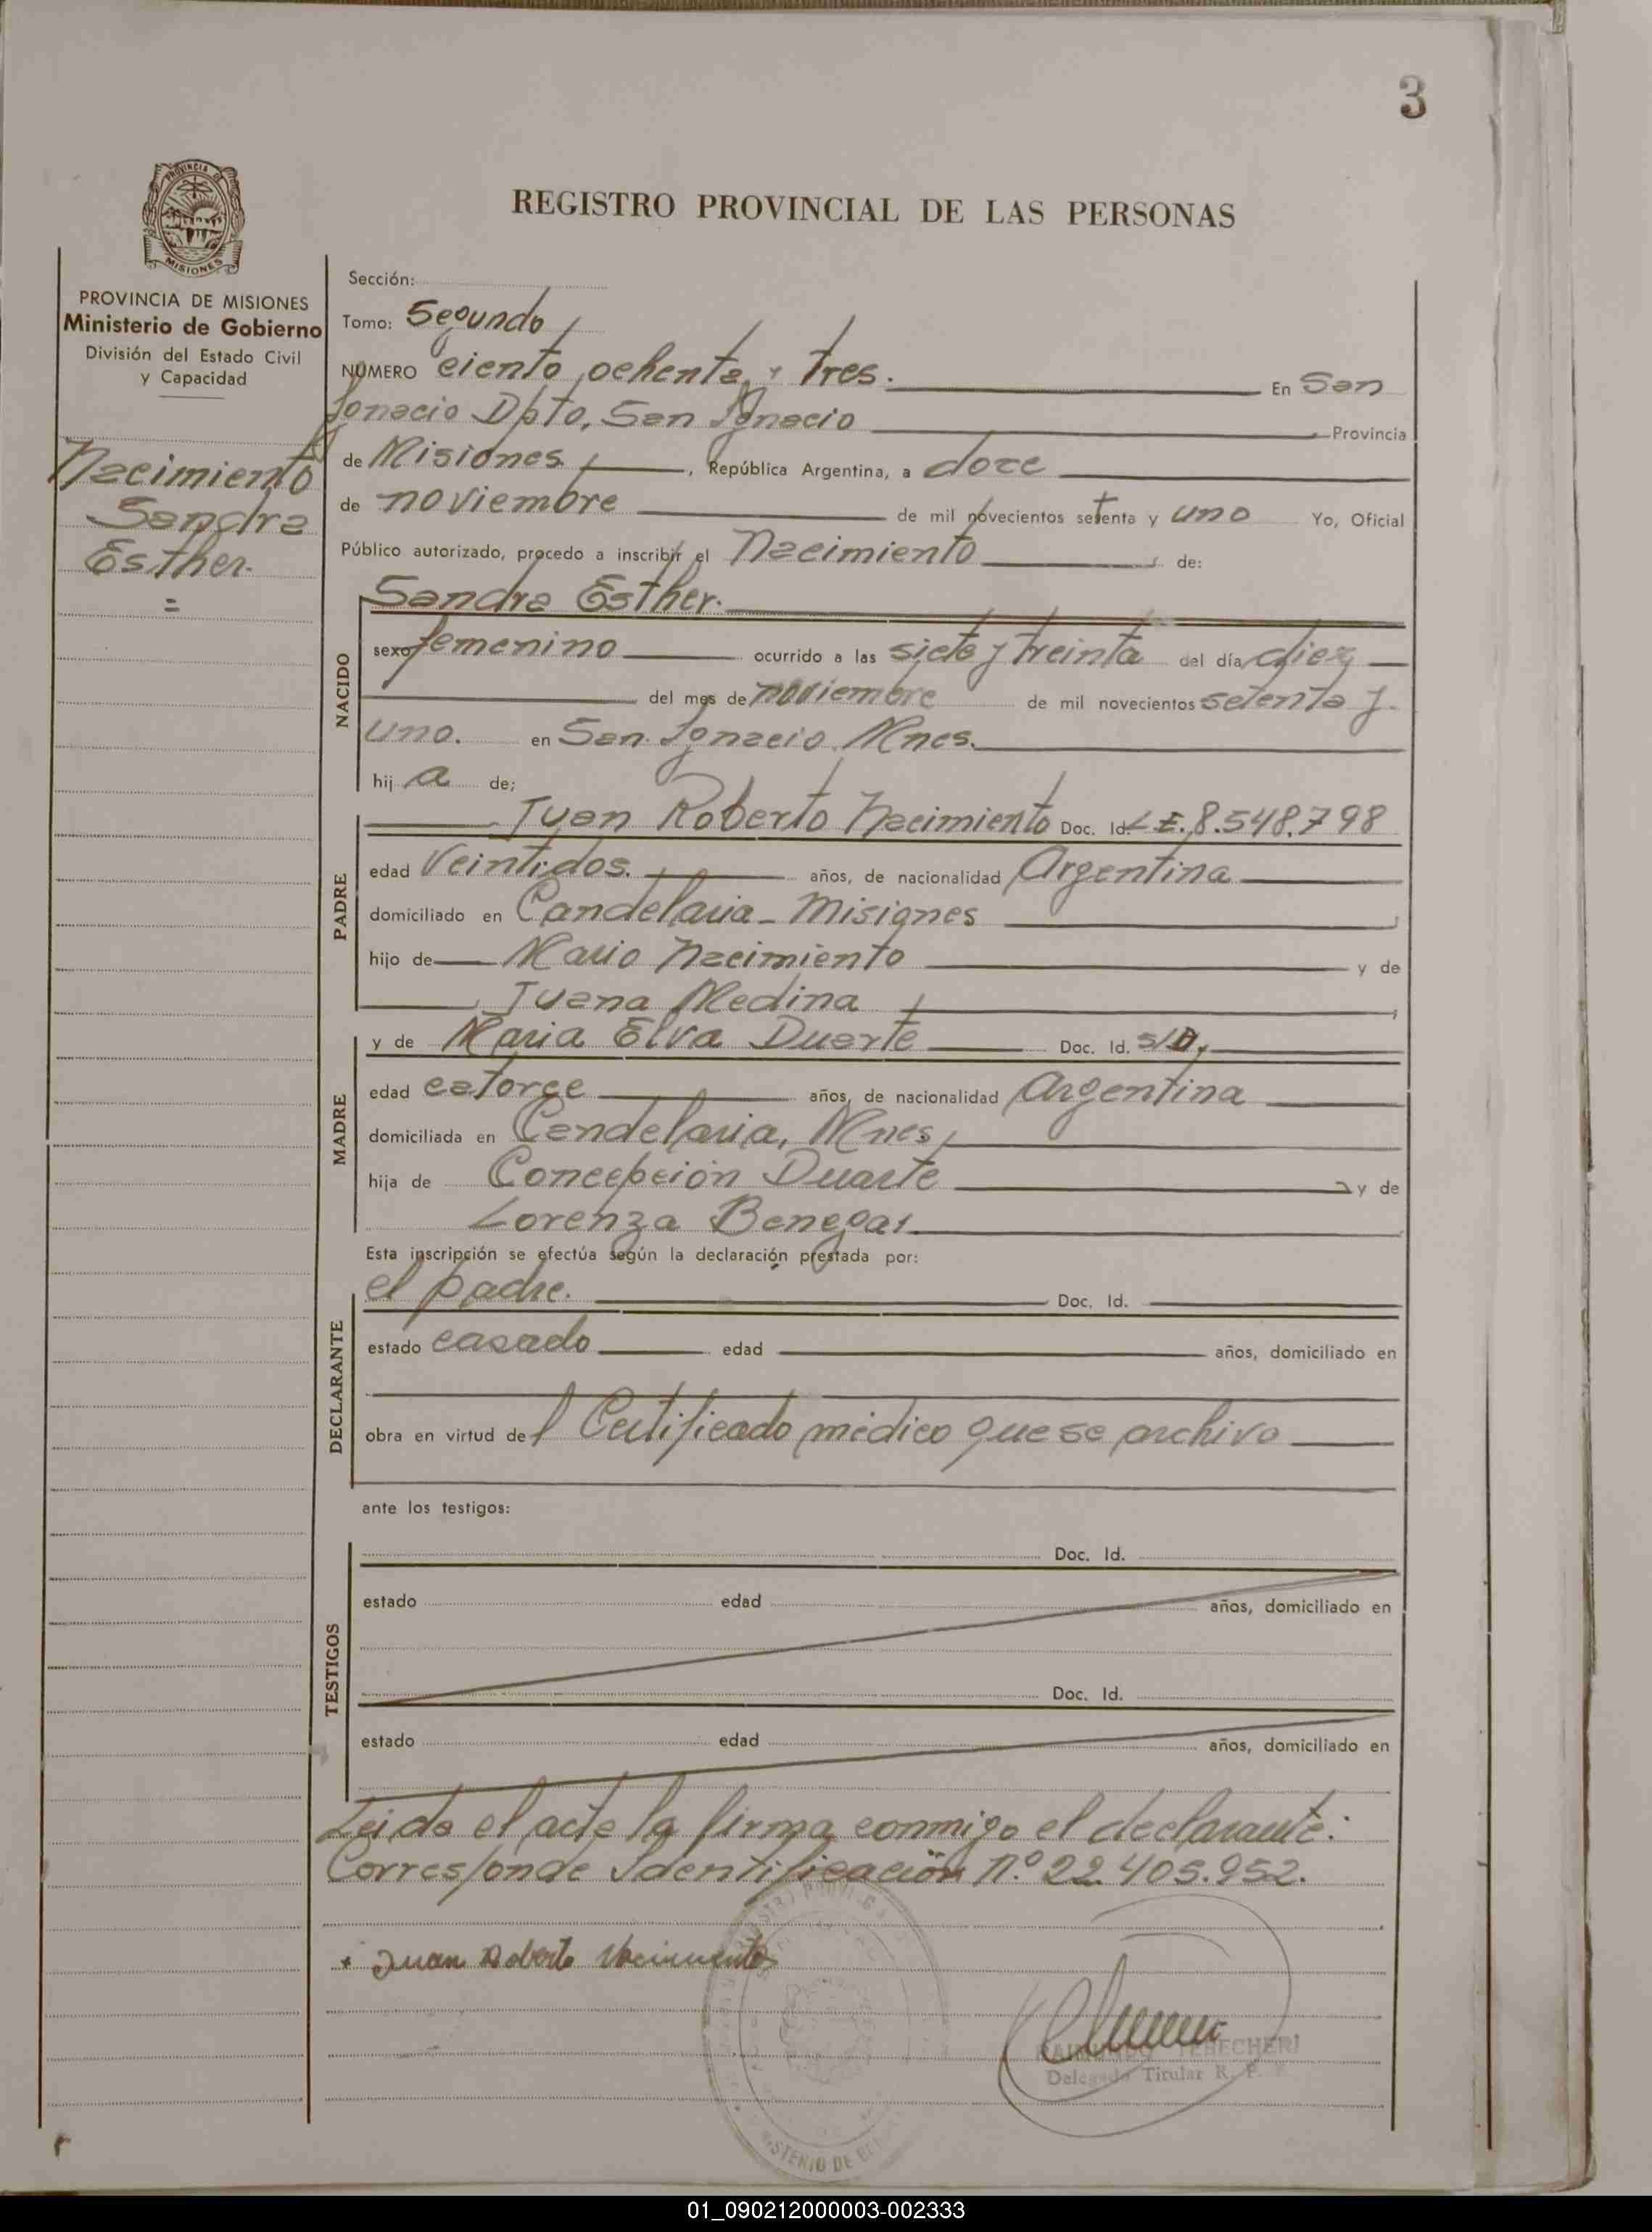 3
PROVINCIA DE
MISIONES
REGISTRO PROVINCIAL DE LAS PERSONAS
PROVINCIA DE MISIONES
Ministerio de Gobierno
División del Estado Civil
y Capacidad
Nacimiento
Sandra
Esther.
=
Sección:
Tomo: Segundo
NÚMERO ciento ochenta y tres. En San
Ignacio Dpto, San Ignacio Provincia
de Misiones, República Argentina, a doce
de noviembre de mil novecientos setenta y uno Yo, Oficial
Público autorizado, procedo a inscribir el Nacimiento de:
NACIDO
Sandra Esther.
sexo femenino ocurrido a las siete y treinta del día diez
del mes de noviembre de mil novecientos setenta y
uno. en San Ignacio Mnes.
hij a de;
PADRE
Juan Roberto Nacimiento Doc. Id. L.E. 8.548.798
edad Veintidos. años, de nacionalidad Argentina
domiciliado en Candelaria - Misiones
hijo de Mario Nacimiento y de
Juana Medina
MADRE
y de Maria Elva Duarte Doc. Id. S/D.
edad catorce años, de nacionalidad Argentina
domiciliada en Candelaria, Mnes
hija de Concepción Duarte y de
Lorenza Benegas.
Esta inscripción se efectúa según la declaración prestada por:
DECLARANTE
el padre. Doc. Id.
estado casado edad años, domiciliado en
obra en virtud del Certificado médico que se archiva
ante los testigos:
TESTIGOS
Doc. Id.
estado edad años, domiciliado en
Doc. Id.
estado edad años, domiciliado en
Leida el acta la firma conmigo el declarante:
Corresponde Identificación Nº 22.405.952.
Juan Roberto Nacimiento
Delegado Titular R. P.
MINISTERIO DE
01_090212000003-002333